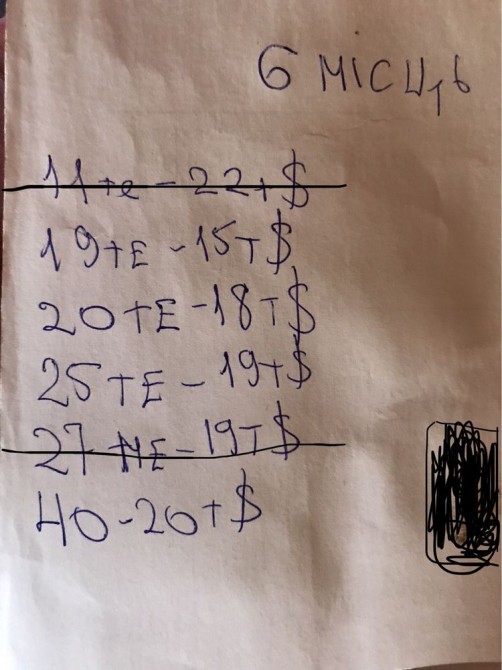 6 місць
11те - 22т$
19тЕ - 15т$
20тЕ - 18т$
25тЕ - 19т$
27 НЕ - 19т$
40 - 20т$